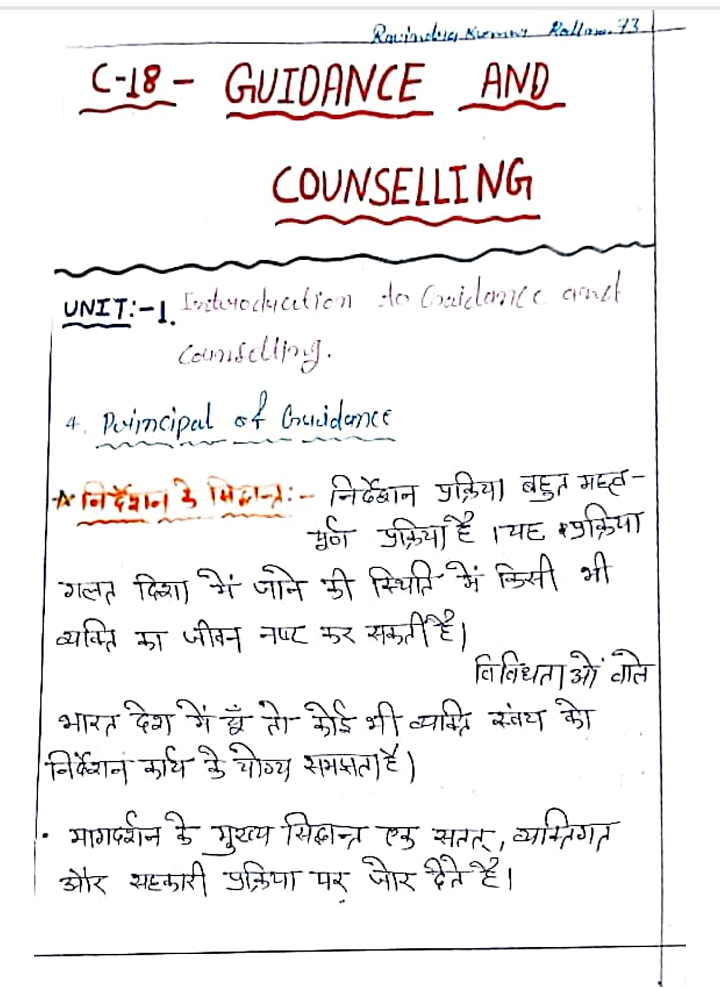 Ravindra Kumar 73
C-18 - GUIDANCE AND
COUNSELLING
UNIT:-1. Introducation to Guidance and
Counselling.
4. Principal of Guidance
★ निर्देशन के सिद्धान्त:- निर्देशन प्रक्रिया बहुत महत्व-
पूर्ण प्रक्रिया है । यह प्रक्रिया
गलत दिशा में जाने की स्थिति में किसी भी
व्यक्ति का जीवन नष्ट कर सकती है।
विविधताओं वाले
भारत देश में यूँ तो कोई भी व्यक्ति स्वंय को
निर्देशन कार्य के योग्य समझता है।
• मागदर्शन के मुख्य सिद्धान्त एक सतत्, व्यक्तिगत
और सहकारी प्रक्रिया पर जोर देते है।